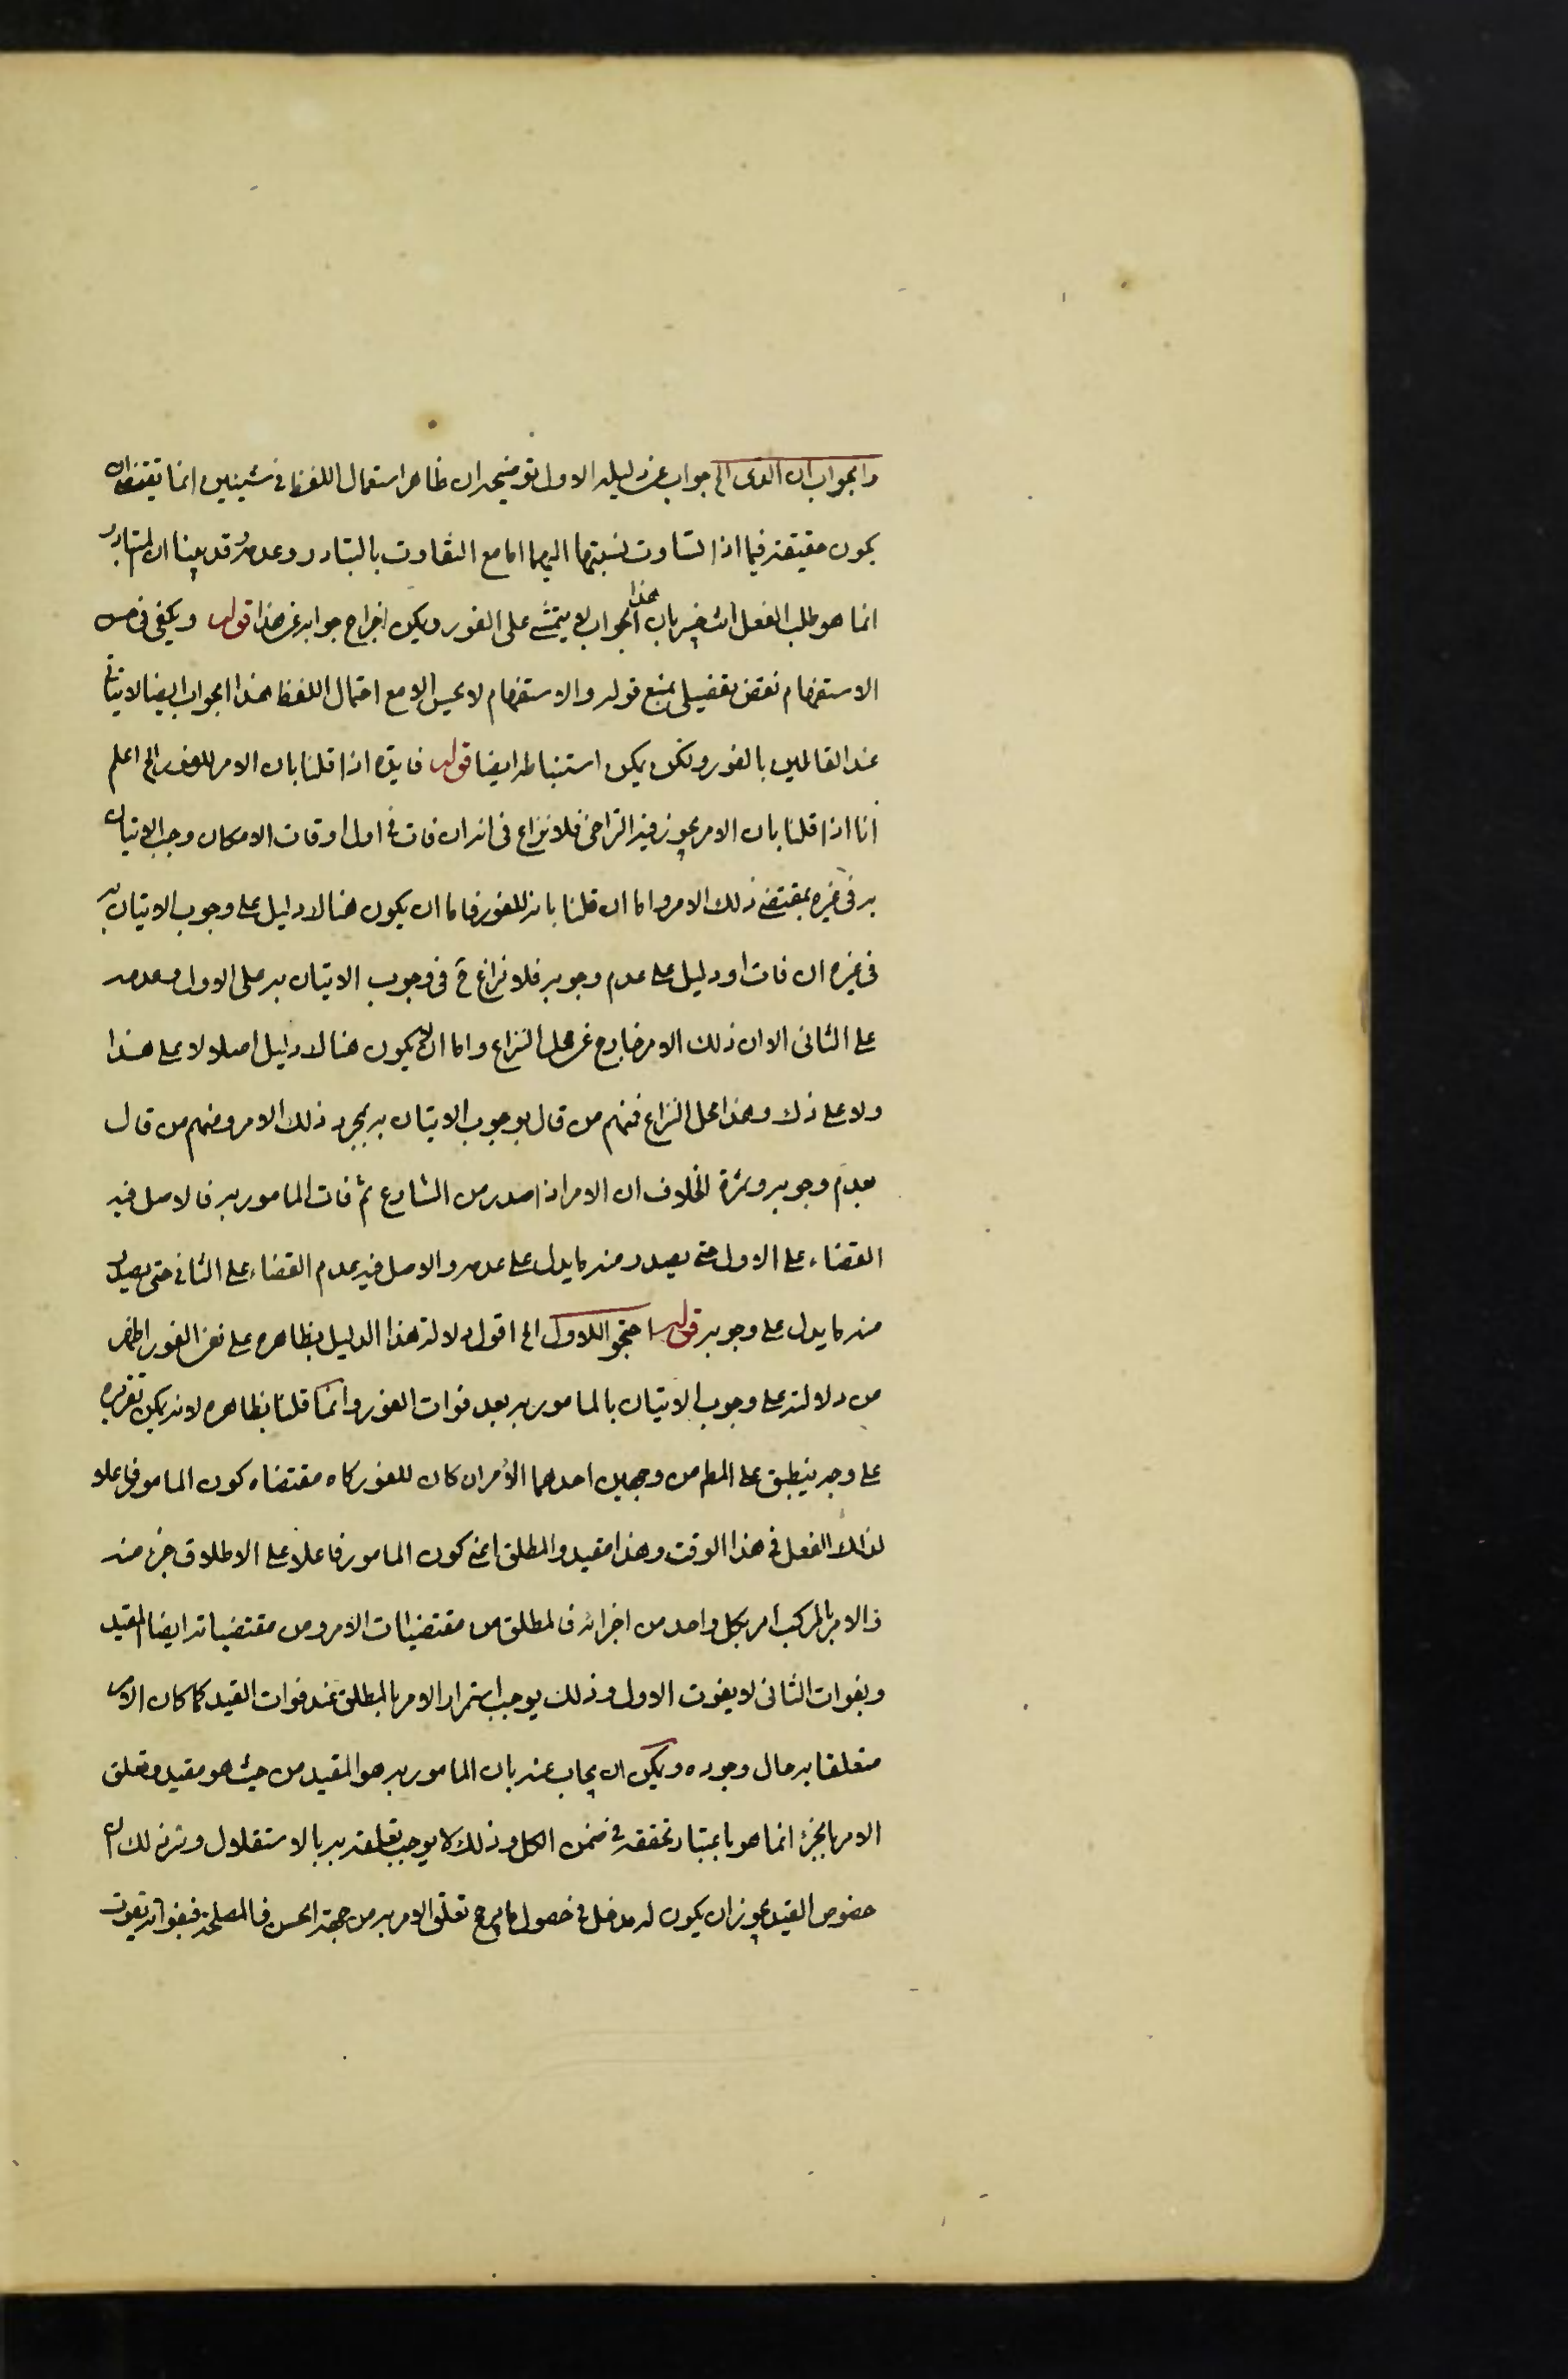 والجواب ان الذی الخ جواب عن دلیله الاول توضیحه ان ظاهر استعمال اللفظ فی شیئین انما یقتضی ان
یکون حقیقة فیما اذا تساوت نسبتها الیهما اما مع التفاوت بالتبادر وعدمه وقد بینا ان المتبادر
انما هو طلب الفعل بان هذا الجواب لا یتمشی علی الفور ویمکن اخراج جوابه عن هذا قوله ویکفی فی حسن
الاستفهام نقض تفصیلی بمنع قوله والاستفهام لا یحسن الا مع احتمال اللفظ هذا الجواب ایضا لا یتاتی
عند القائلین بالفور ولکن یمکن استنباطه ایضا قوله فایدة اذا قلنا بان الامر للفور الخ اعلم
انا اذا قلنا بان الامر یجوز فیه التراخی فلا نزاع فی انه ان فات فی اول اوقات الامکان وجب الاتیان
به فی غیره بمقتضی ذلک الامر واما ان قلنا بانه للفور فاما ان یکون هناک دلیل علی وجوب الاتیان به
فی غیره ان فات او دلیل علی عدم وجوبه فلا نزاع ح فی وجوب الاتیان به علی الاول وعدمه
علی الثانی الا ان ذلک الامر خارج عن محل النزاع واما ان لا یکون هناک دلیل اصلا لا علی هذا
ولا علی ذلک وهذا محل النزاع فمنهم من قال بوجوب الاتیان به بمجرد ذلک الامر ومنهم من قال
بعدم وجوبه وثمرة الخلاف ان الامر اذا صدر من الشارع ثم فات المامور به فالاصل فیه
القضاء علی الاول حتی یصدر منه ما یدل علی عدمه والاصل فیه عدم القضاء علی الثانی حتی یصدر
منه ما یدل علی وجوبه قوله احتجوا للاول الخ اقول دلالة هذا الدلیل بظاهره علی نفی الفور اظهر
من دلالته علی وجوب الاتیان بالمامور به بعد فوات الفور وانما قلنا بظاهره لانه یمکن تقریره
علی وجه ینطبق علی المط من وجهین احدهما الامر ان کان للفور کان مقتضاه کون المامور فاعلا
لذلک الفعل فی هذا الوقت وهذا مقید والمطلق اعنی کون المامور فاعلا علی الاطلاق جزء منه
فالامر بالمرکب امر بکل واحد من اجزائه فالمطلق من مقتضیات الامر ومن مقتضیاته ایضا المقید
وبفوات الثانی لا یفوت الاول وذلک یوجب استمرار الامر بالمطلق عند فوات القید کما کان الامر
متعلقا به حال وجوده ویمکن ان یجاب عنه بان المامور به هو المقید من حیث هو مقید وتعلق
الامر بالجزء انما هو باعتبار تحققه فی ضمن الکل وذلک لا یوجب تعلقه به بالاستقلال وسر ذلک ان
خصوص القید یجوز ان یکون له مدخل فی حصول ما یرجح تعلق الامر به من جهة الحسن فالمصلحة فبفواته تفوت